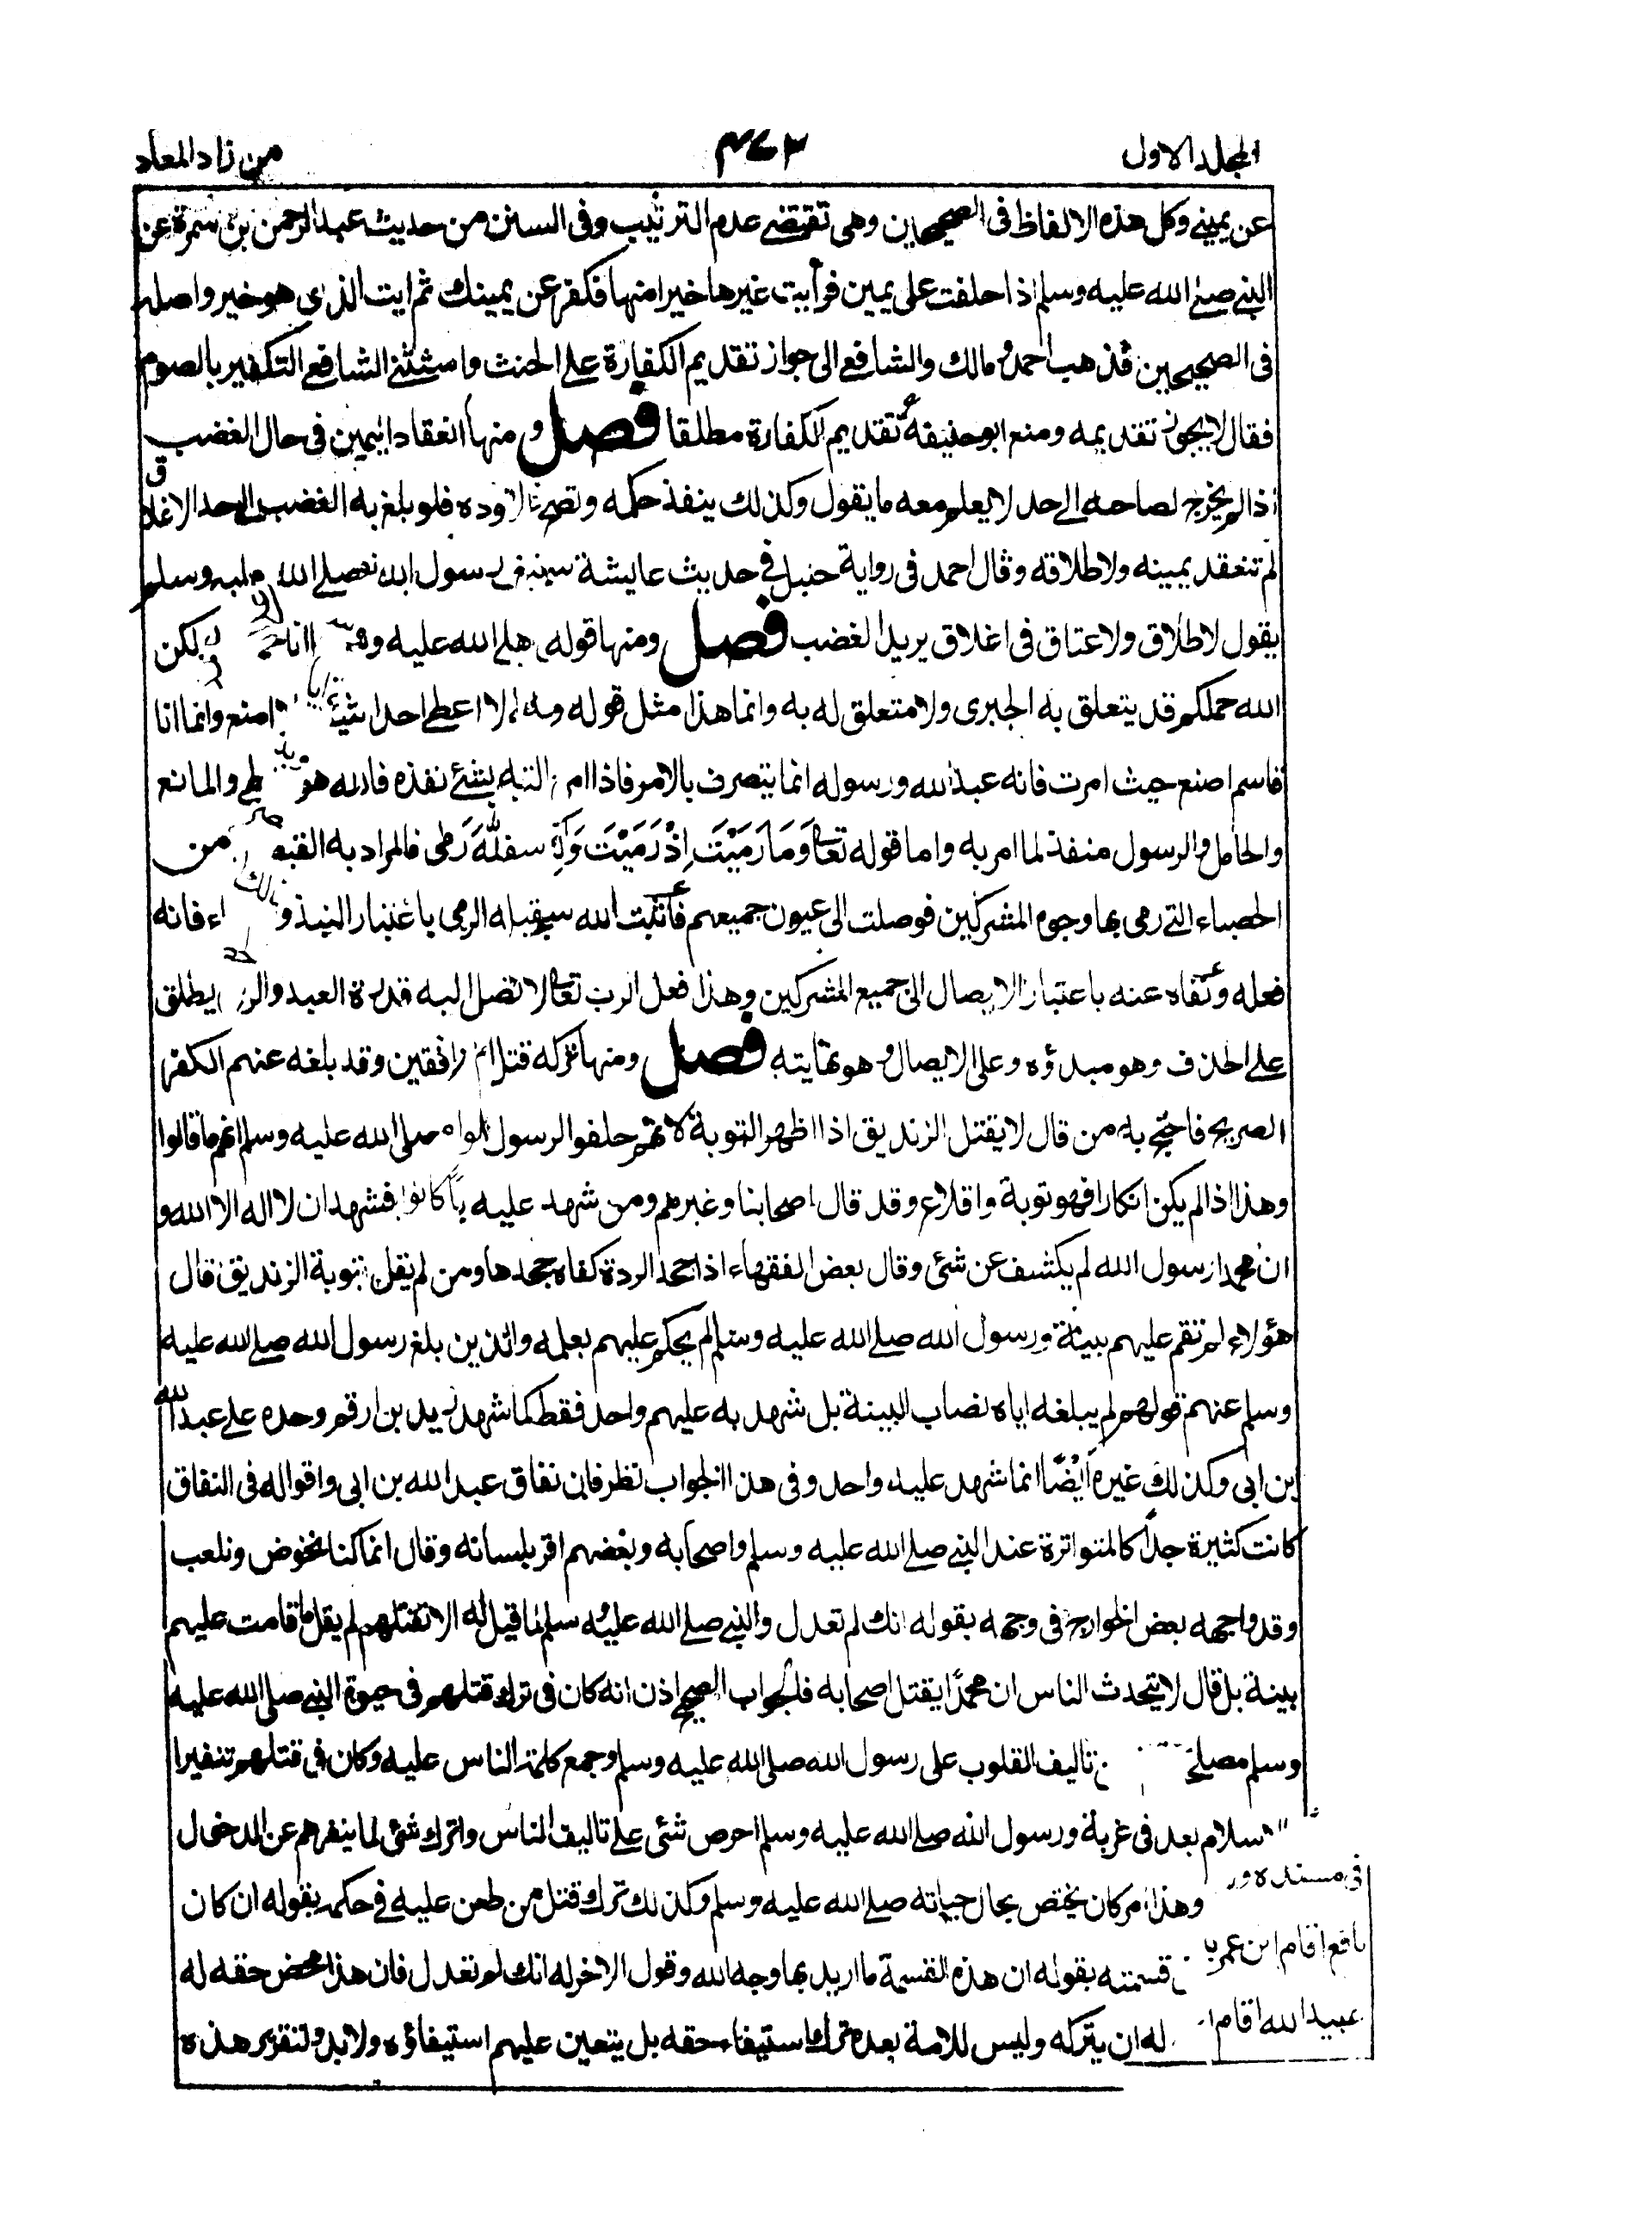 المجلد الاول
٤٧٣
من زاد المعاد
عن يميني وكل هذه الالفاظ فى الصحيحين وهى تقتضے عدم الترتيب وفى السنن من حديث عبد الرحمن بن سمرة عن
النبے صلے الله عليه وسلم اذا حلفت على يمين فرأيت غيرها خيرا منها فكفر عن يمينك ثم ايت الذى هو خير واصله
فى الصحيحين فذهب احمد ومالك والشافعے الى جواز تقديم الكفارة على الحنث واستثنے الشافعے التكفير بالصوم
فقال لا يجوز تقديمه ومنع ابو حنيفة تقديم الكفارة مطلقا فصل ومنها انعقاد اليمين فى حال الغضب
اذا لم يخرج لصاحبه الے حد لا يعلم معه ما يقول وكذلك ينفذ حكمه وتصح عقوده فلو بلغ به الغضب الے حد الاغلاق
لم تنعقد يمينه ولا طلاقه وقال احمد فى رواية حنبل فے حديث عايشة رسول الله صلے الله عليه وسلم
يقول لا طلاق ولا عتاق فى اغلاق يريد الغضب فصل ومنها قوله صلے الله عليه و انا ولكن
الله حملكم قد يتعلق به الجبرى ولا متعلق له به وانما هذا مثل قوله والله لا اعطے احدا شيئا امنع وانما انا
قاسم اضع حيث امرت فانه عبد الله ورسوله انما يتصرف بالامر فاذا امر بشئ نفذه فالله هو والمانع
والحامل والرسول منفذ لما امر به واما قوله تعالى وَمَا رَمَيْتَ اِذْ رَمَيْتَ اللّٰهَ رَمٰى فالمراد به القبض من
الحصباء التے رمى بها وجوه المشركين فوصلت الى عيون جميعهم فاثبت الله سبحانه له الرمى باعتبار النبذ و فانه
فعله ونفاه عنه باعتبار الايصال الى جميع المشركين وهذا فعل الرب تعالى لا تصل اليه قدرة العبد والرمى يطلق
على الحذف وهو مبدؤه وعلى الايصال وهو نهايته فصل ومنها تركه قتل المنافقين وقد بلغه عنهم الكفر
الصريح فاحتج به من قال لا يقتل الزنديق اذا اظهر التوبة لانهم حلفوا لرسول الله صلى الله عليه وسلم انهم ما قالوا
وهذا اذا لم يكن انكارا فهو توبة واقلاع وقد قال اصحابنا وغيرهم ومن شهد عليه فشهد ان لا اله الا الله و
ان محمدا رسول الله لم يكشف عن شئ وقال بعض الفقهاء اذا جحد الردة كفاه جحدها ومن لم يقل بتوبة الزنديق قال
هؤلاء لم تقم عليهم بينة ورسول الله صلے الله عليه وسلم لم يحكم عليهم بعلمه والذين بلغ رسول الله صلے الله عليه
وسلم عنهم قولهم لم يبلغه اياه نصاب البينة بل شهد به عليهم واحد فقط كما شهد زيد بن ارقم وحده علے عبد الله
بن ابى وكذلك غيره ايضًا انما شهد عليه واحد وفى هذا الجواب نظر فان نفاق عبد الله بن ابى واقواله فى النفاق
كانت كثيرة جدًا كالمتواترة عند النبے صلے الله عليه وسلم واصحابه وبعضهم اقر بلسانه وقال انما كنا نخوض ونلعب
وقد واجهه بعض الخوارج فى وجهه بقوله انك لم تعدل والنبے صلے الله عليه وسلم لما قيل له الا تقتلهم لم يقل ما قامت عليهم
بينة بل قال لا يتحدث الناس ان محمدًا يقتل اصحابه فالجواب الصحيح اذن انه كان فى ترك قتلهم فى حيوة النبے صلى الله عليه
وسلم مصلحة تاليف القلوب على رسول الله صلى الله عليه وسلم وجمع كلمة الناس عليه وكان فى قتلهم تنفيرا
الاسلام بعد فى غربة ورسول الله صلے الله عليه وسلم احرص شئى علے تاليف الناس واترك شئى لما ينفرهم عن الدخول
وهذا امر كان يختص بحال حياته صلے الله عليه وسلم وكذلك ترك قتل من طعن عليه فے حكمه بقوله ان كان
قسمته بقوله ان هذه القسمة ما اريد بها وجه الله وقول الاخر له انك لم تعدل فان هذا محض حقه له
له ان يتركه وليس للامة بعده ترك استيفاء حقه بل يتعين عليهم استيفاؤه ولا بد ولتقرير هذه
فى مسنده
نافع اقام ابن عمر
عبيد الله اقام